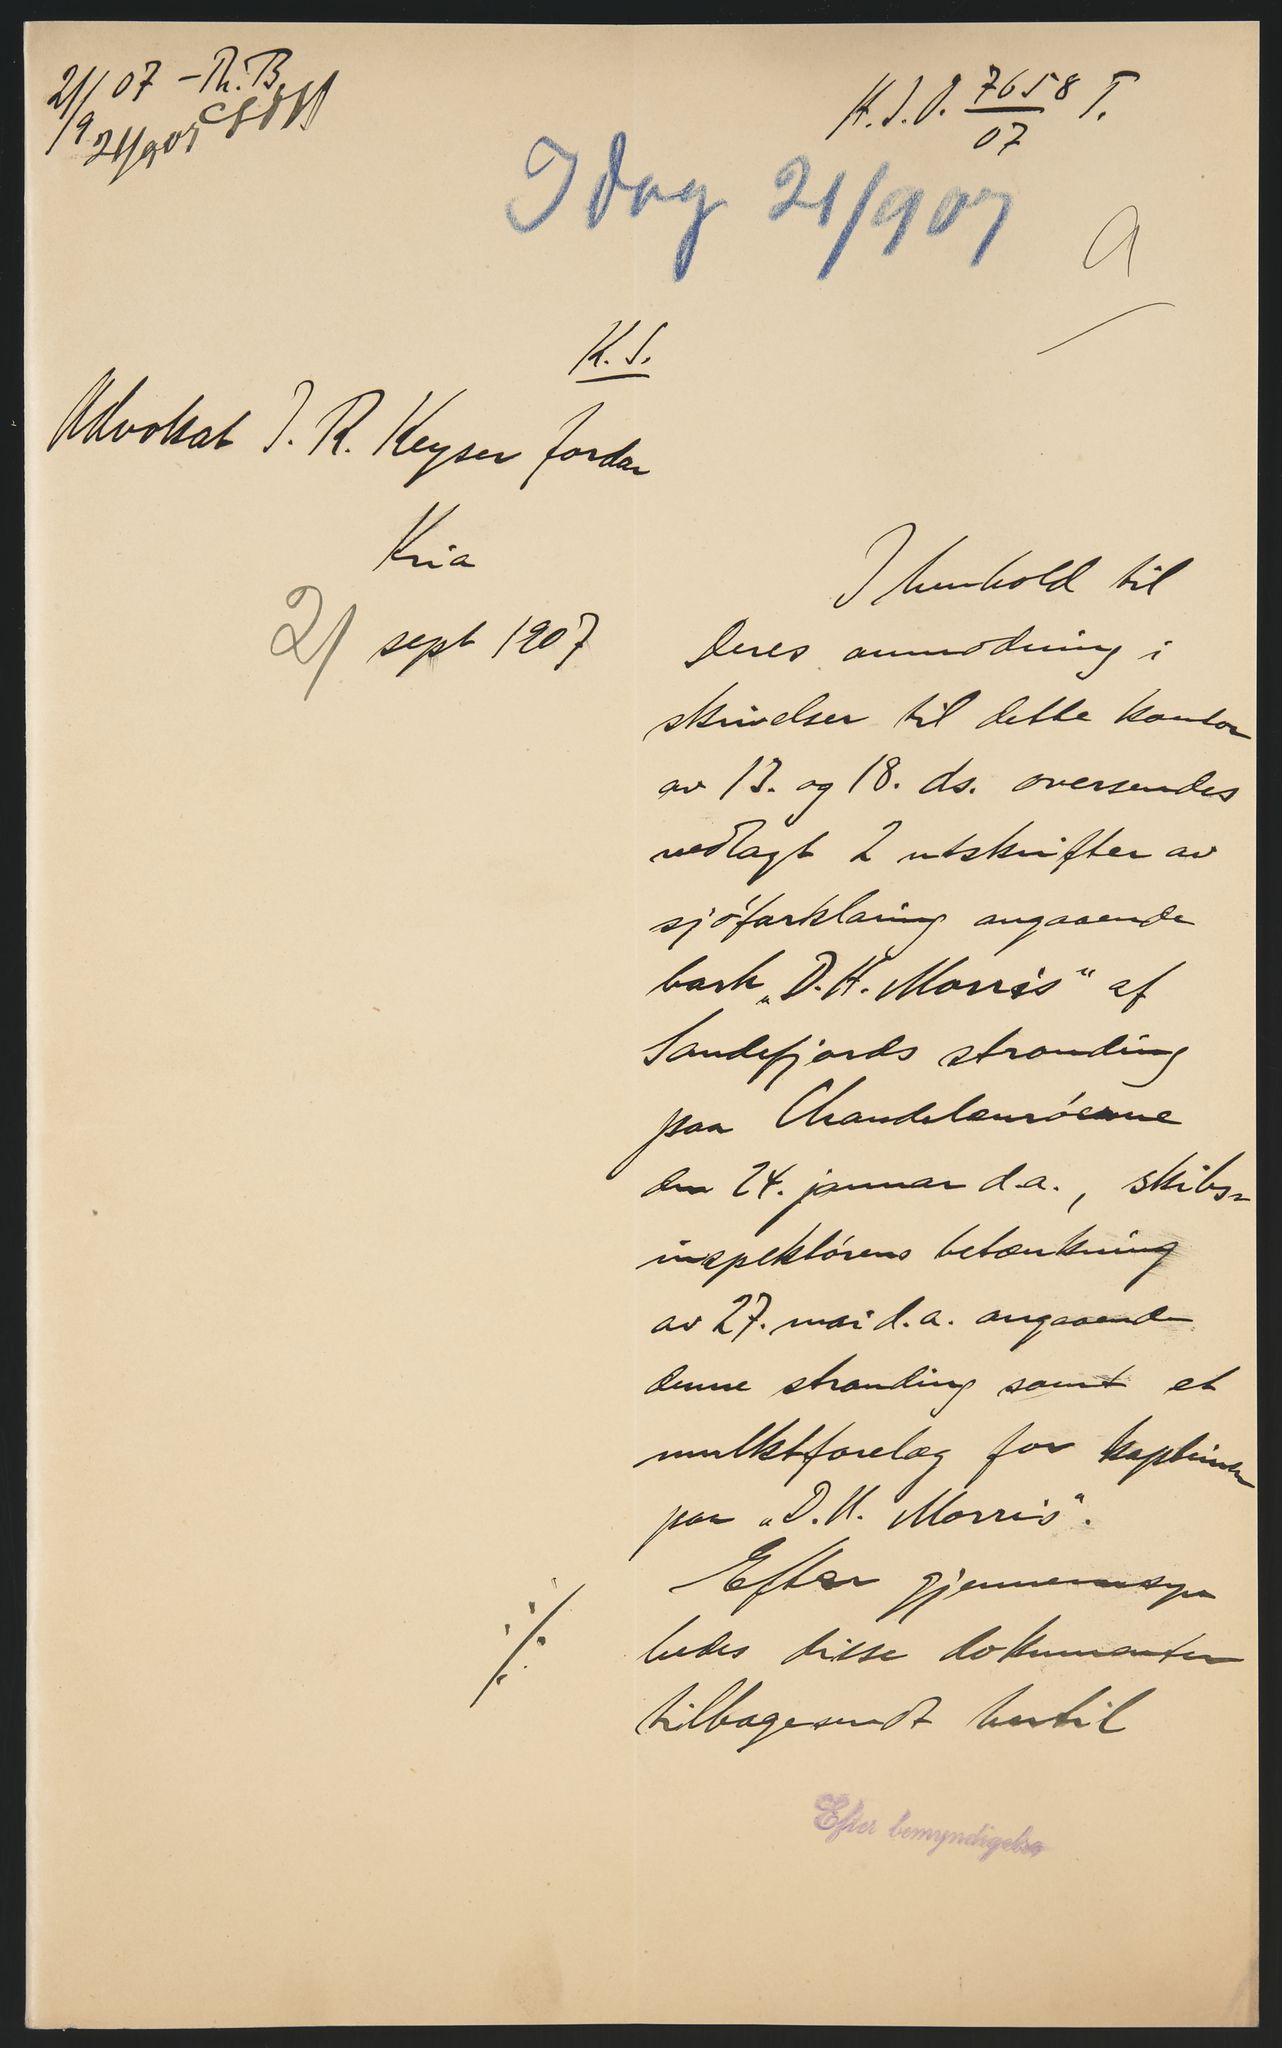 21/9 07 – Th. B.
21/9 07
H. J. O. 7658/07 T.
Idag 21/9 07
a
K. S.
Advokat J. R. Keyser Jordan
Kria
21 sept 1907
I henhold til
Deres anmodning i
skrivelser til dette kontor
av 13. og 18. ds. oversendes
vedlagt 2 utskrifter av
sjöforklaring angaaende
bark „D. H. Morris" af
Sandefjords stranding
paa Chandeleuröerne
den 24. januar d.a., skibs-
inspektörens betænkning
av 27. mai d.a. angaaende
denne stranding samt et
mulktforelæg for kapteinen
paa „D. H. Morris".
Efter gjennemsyn
bedes disse dokumenter
tilbagesendt hertil
Efter bemyndigelse